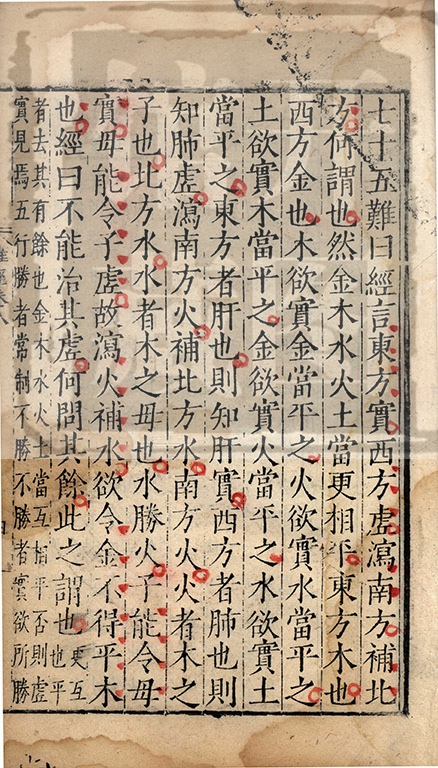 七十五難曰經言東方實西方虛瀉南方補北
方何謂也然金木水火土當更相平東方木也
西方金也木欲實金當平之火欲實水當平之
土欲實木當平之金欲實火當平之水欲實土
當平之東方者肝也則知肝實西方者肺也則
知肺虛瀉南方火補北方水南方火火者木之
子也北方水水者木之母也水勝火子能令母
實母能令子虛故瀉火補水欲令金不得平木
也經曰不能治其虛何問其餘此之謂也
更互
也平
者去其有餘也金木水火土當互相平否則虛
實見焉五行勝者常制不勝不勝者實欲所勝